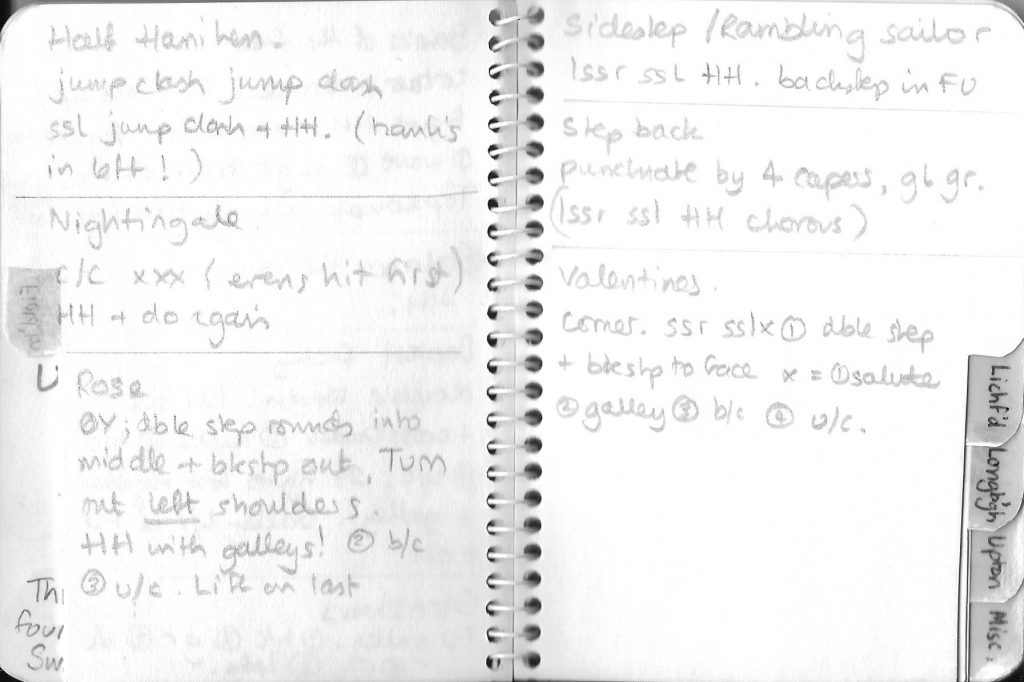 Half Hanikens.
jump clash jump clash
ssl jump clash + HH. (hank's
in left!)
Nightingale
c/c xxx (evens hit first)
HH + do again
Rose
OY; dble step rounds into
middle + bkstp out, Turn
out left shoulders
HH with galleys! ② b/c
③ u/c. Lift on last
Thi
four
Sw
Sidestep / Rambling sailor
1ssr ssl HH. backstep in FU
Step back
punctuate by 4 capers, gl gr.
(1ssr ssl HH chorous)
Valentines.
Corner. ssr sslx ① dble step
+ bkstp to face x = ① salute
② galley ③ b/c ④ u/c.
Lichf'd
Longb'gh
Upton
Misc.